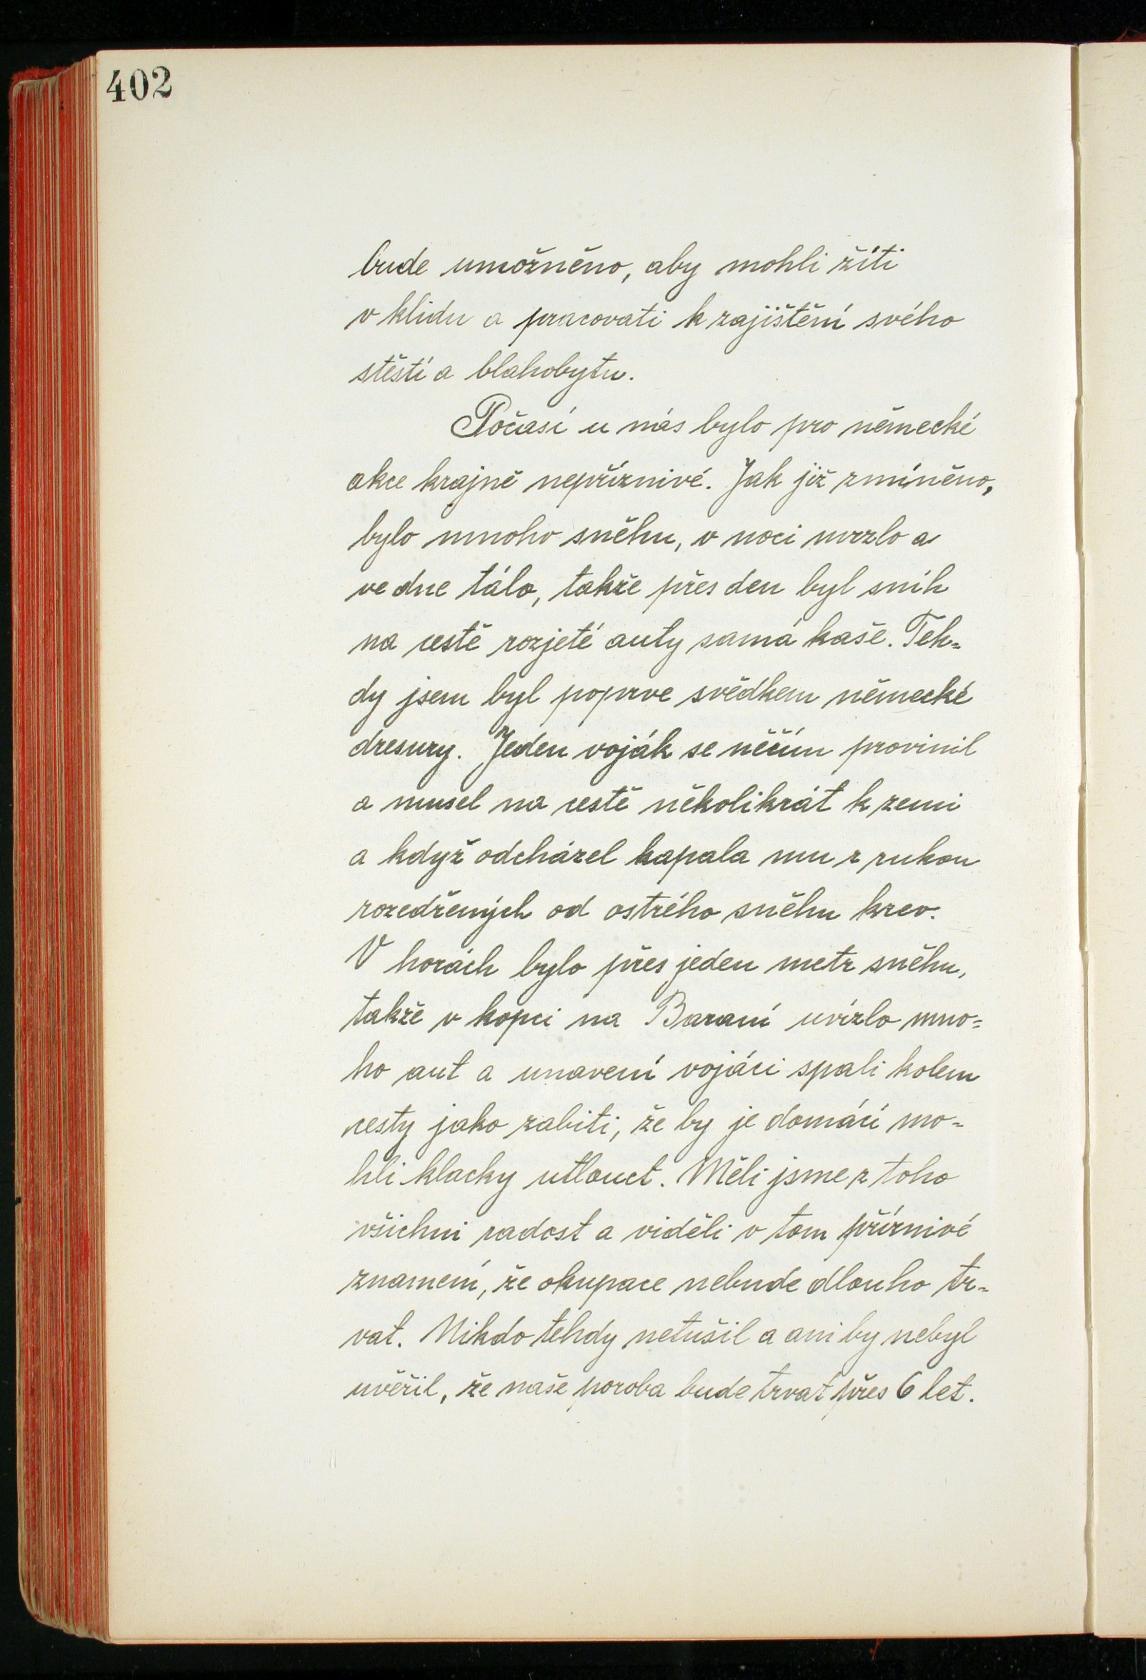 402
bude umožněno, aby mohli žíti
v klidu a pracovati k zajištění svého
štěstí a blahobytu.
Počasí u nás bylo pro německé
akce krajně nepříznivé. Jak již zmíněno,
bylo mnoho sněhu, v noci mrzlo a
ve dne tálo, takže přes den byl sníh
na cestě rozjeté auty samá kaše. Teh=
dy jsem byl poprve svědkem německé
dresury. Jeden voják se něčím provinil
a musel na cestě několikrát k zemi
a když odcházel kapala mu z rukou
rozedřených od ostrého sněhu krev.
V horách bylo přes jeden metr sněhu,
takže v kopci na Baraní uvízlo mno=
ho aut a unavení vojáci spali kolem
cesty jako zabiti, že by je domácí mo-
hli klacky utlouct. Měli jsme z toho
všichni radost a viděli v tom příznivé
znamení, že okupace nebude dlouho tr-
vat. Nikdo tehdy netušil a ani by nebyl
uvěřil, že naše poroba bude trvat přes 6 let.